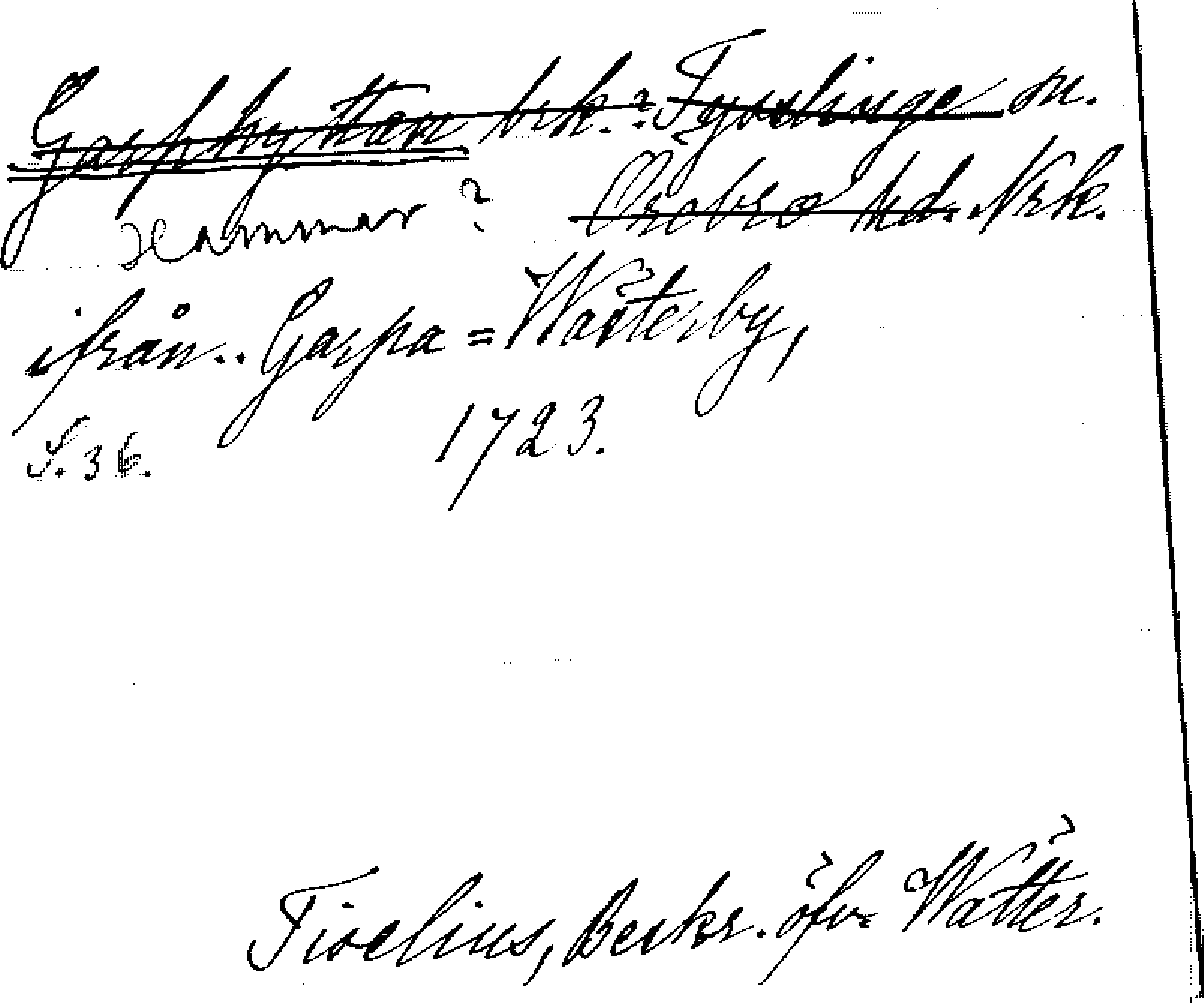 Garphyttan brk.? Tysslinge sn.
Hammar? Örebro hd. Nrk.
ifrån.. Garpa=Wästerby,
S. 36. 1723.
Tiselius, Beskr. öfv. Wätter.